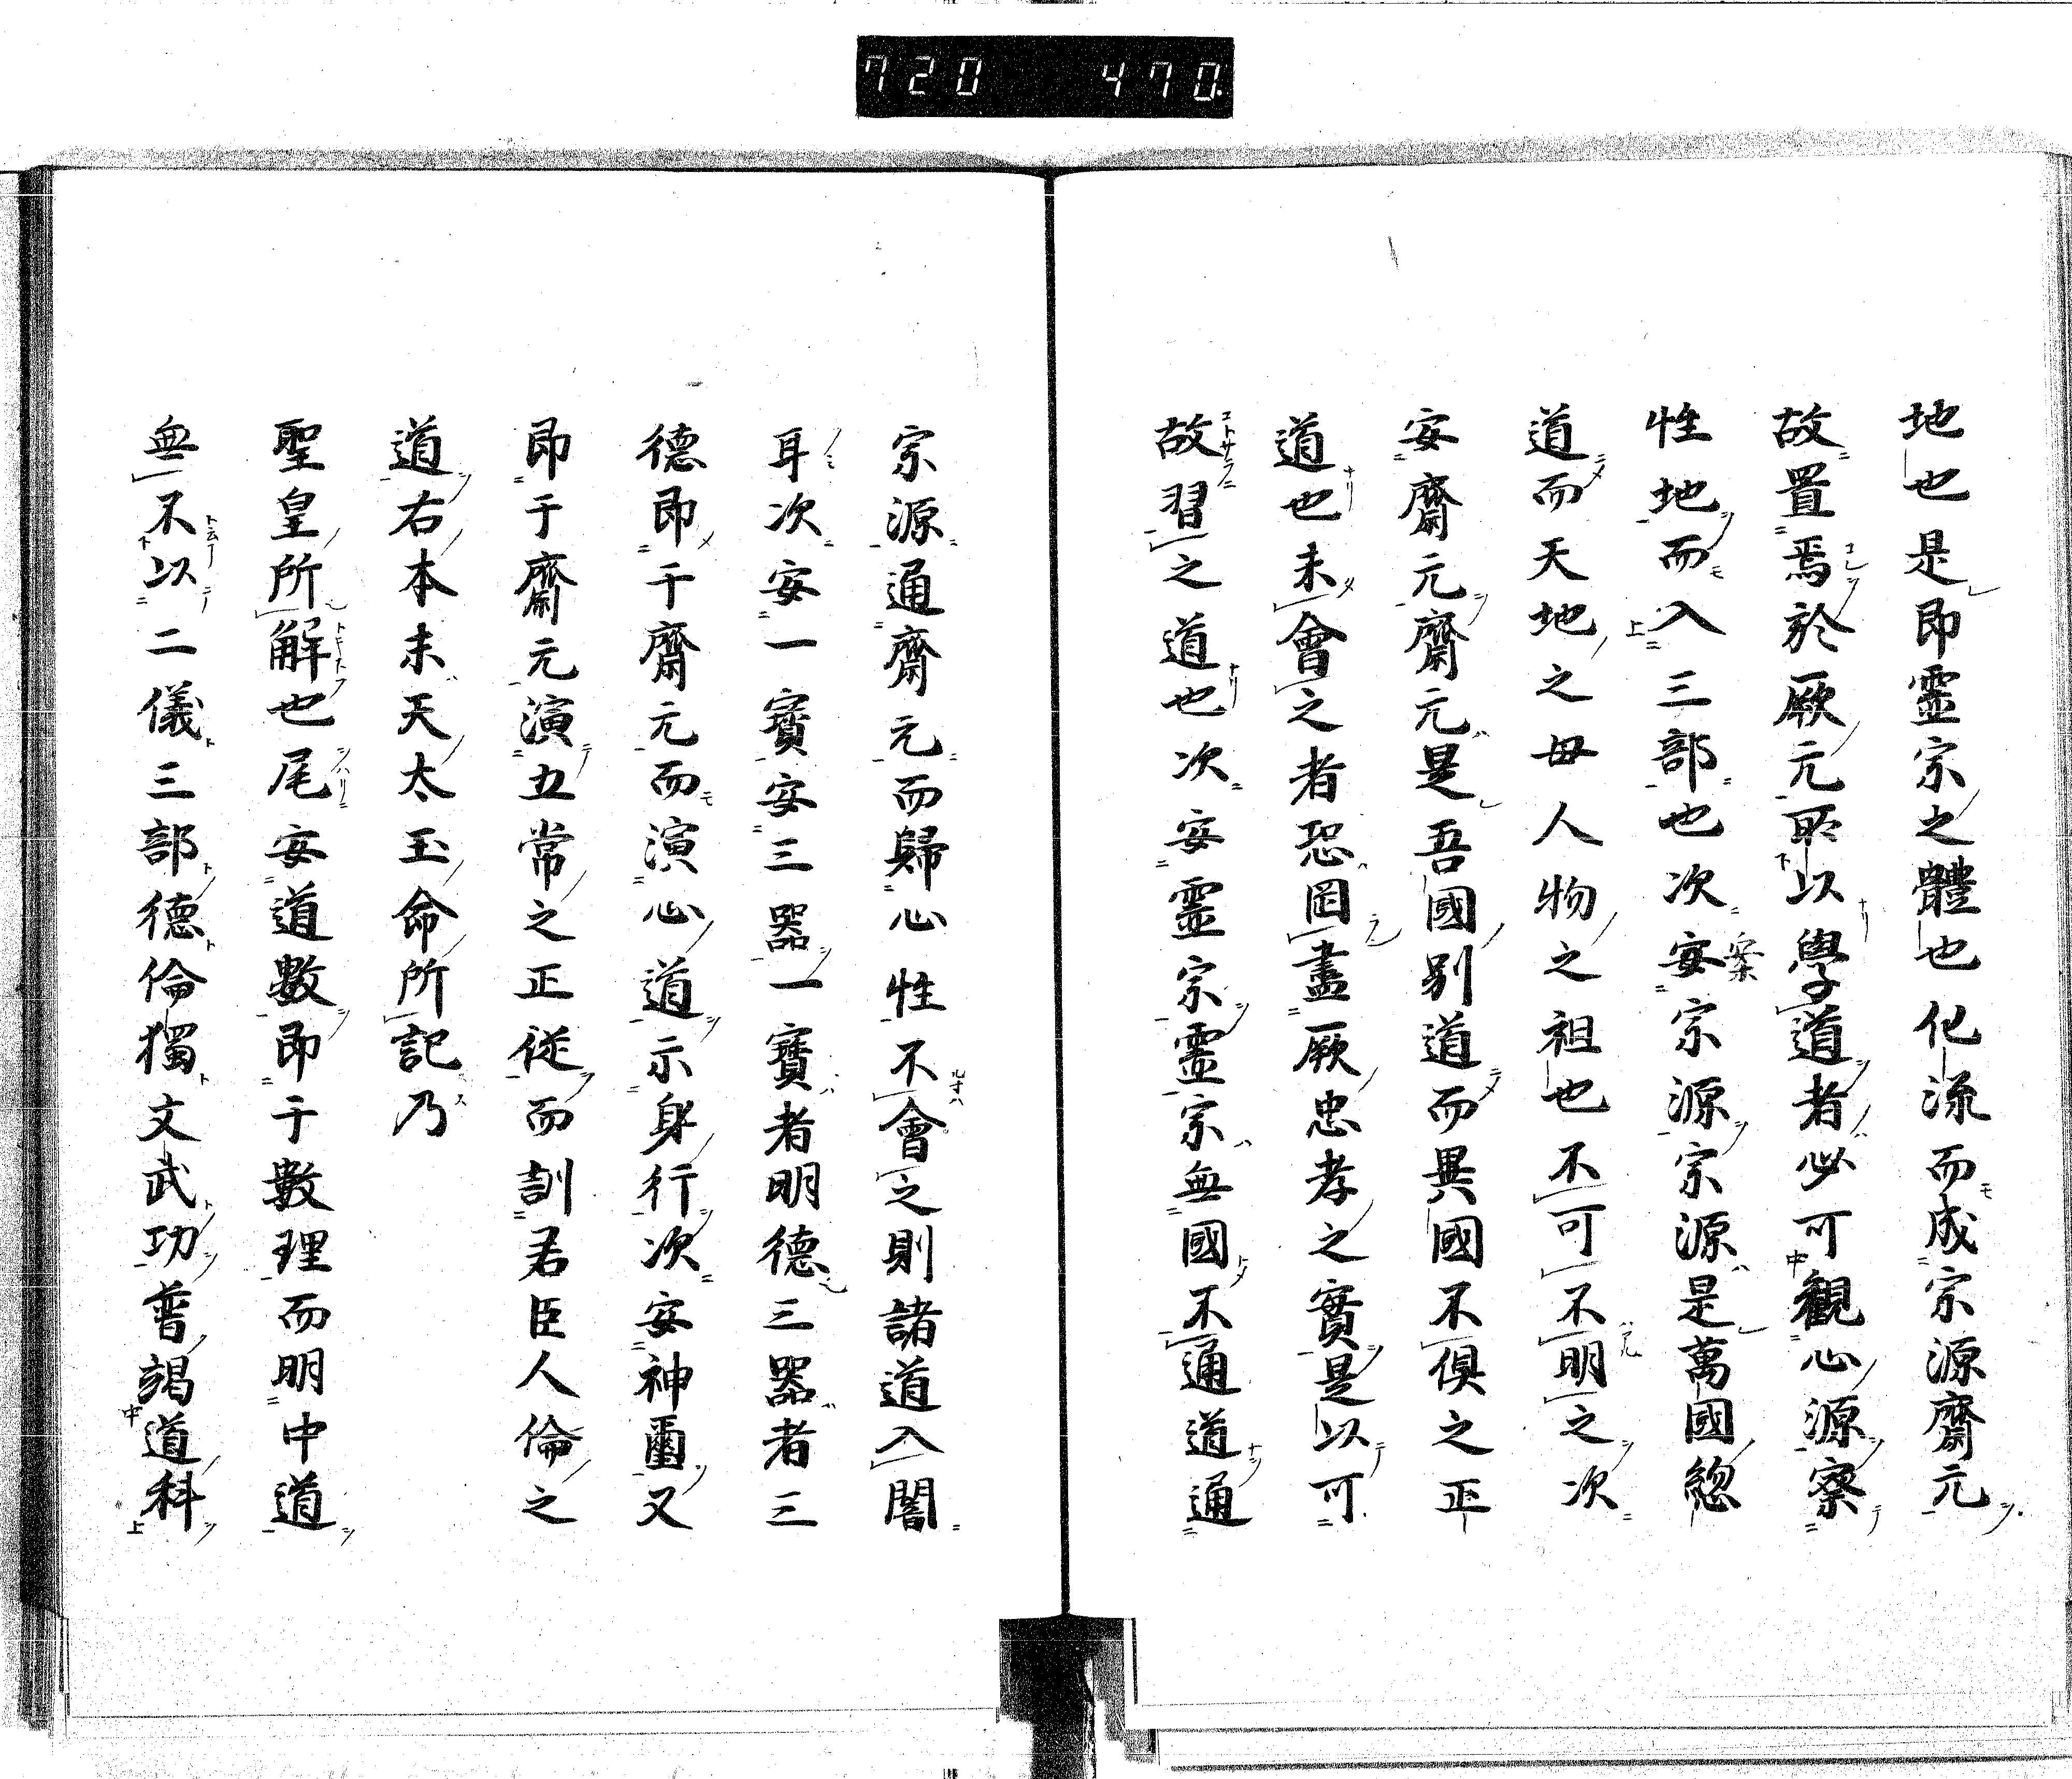 720 470
地也是即靈宗之體也化流而成宗源齋元
故置焉於厥元所以學道者必可觀心源察
性地而入三部也次安宗源宗源是萬國總
案
道而天地之毋人物之祖也不可不明之次
安齋元齋元是吾國別道而異國不俱之正
道也未會之者恐罔盡厥忠孝之實是以可
故習之道也次安靈宗靈宗無國不通道通
宗源通齋元而歸心性不會之則諸道入闇
耳次安一寶安三器一寶者明德三器者三
德即于齋元而演心道示身行次安神璽又
即于齋元演五常之正從而訓君臣人倫之
道右本末天太玉命所記乃
聖皇所解也尾安道數即于數理而明中道
無不以二儀三部德倫獨文武功普竭道科